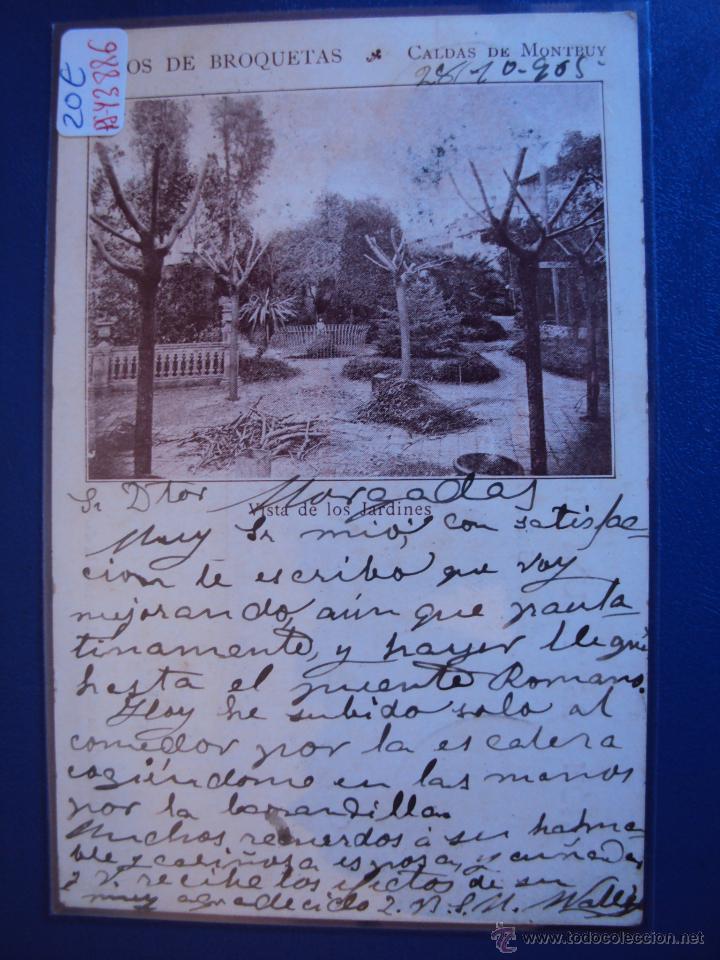 OS DE BROQUETAS CALDAS DE MONTBUY
20€
28-10-905
Vista de los Jardines
Sr Dtor Morgadas
Muy Sr mio, con satisfac-
cion te escribo que voy
mejorando, aún que paula-
tinamente, y hayer llegué
hasta el puente Romano.
Hoy he subido solo al
comedor por la escalera
cogiéndome en las manos
por la barandilla.
Muchos recuerdos á su
ble y cariñosa esposa, y cuñada,
y V. recibe los de su
muy agradecido 2. B. S. M.
todocoleccion.net